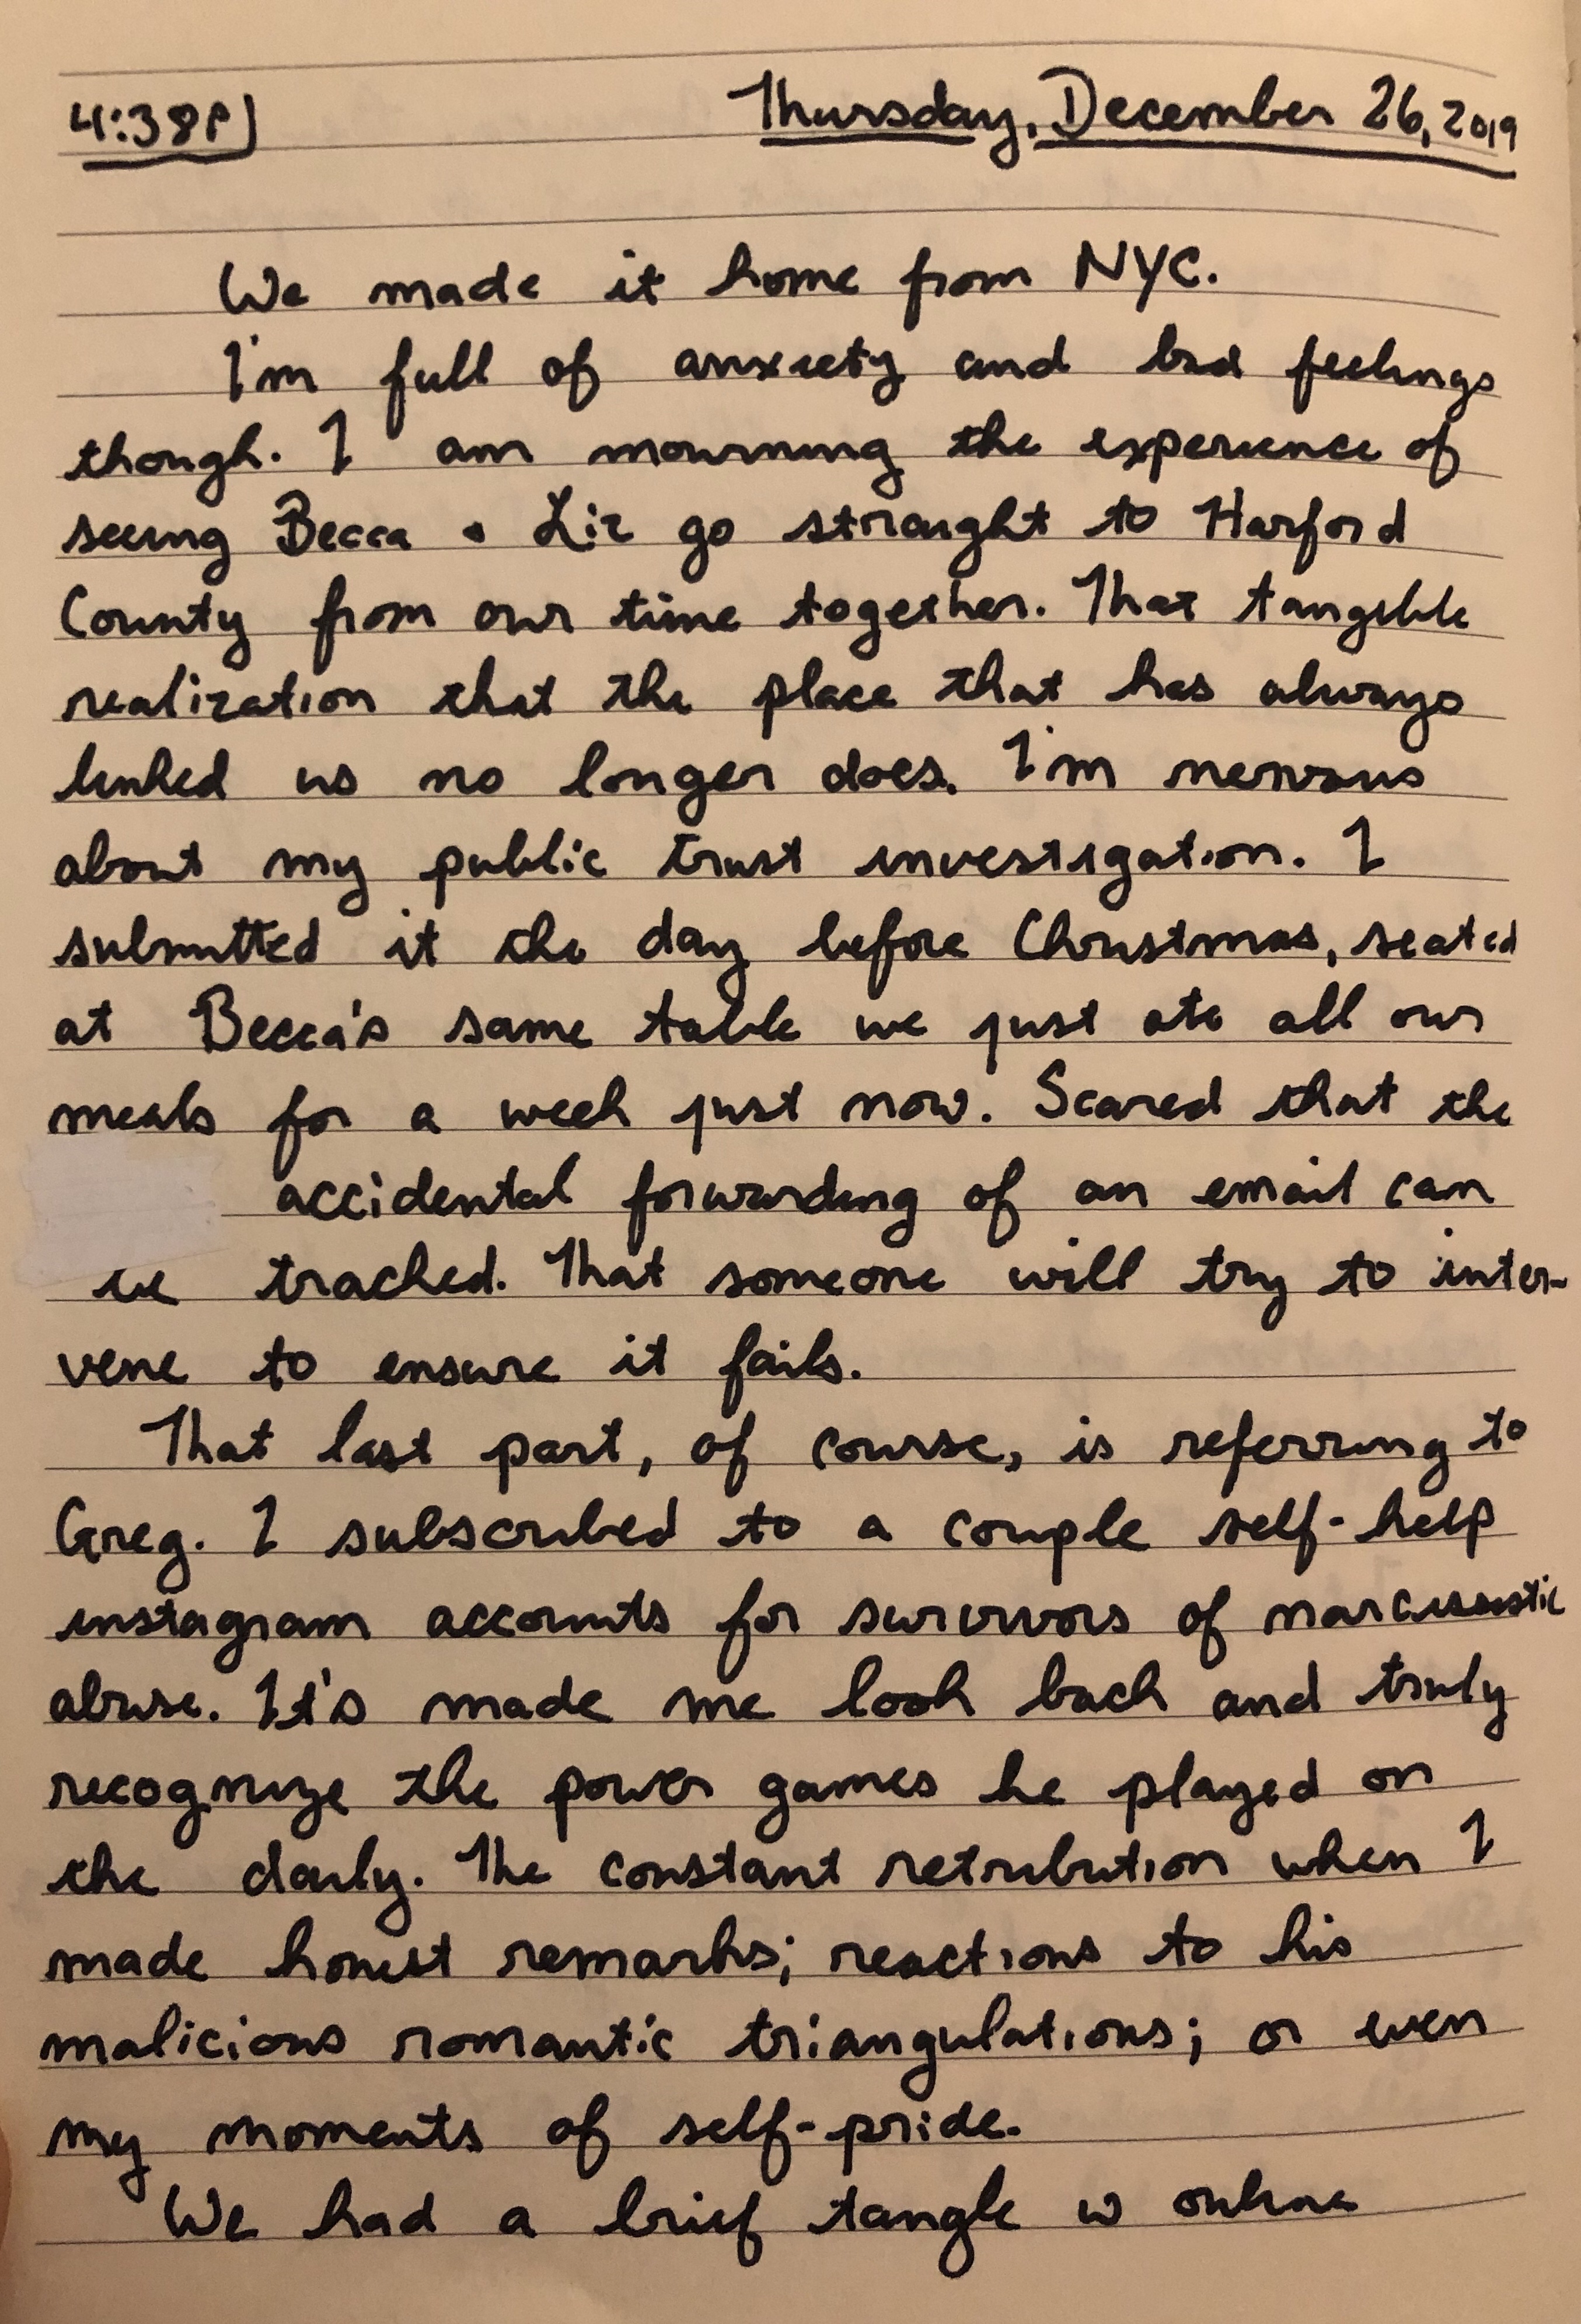 4:38P]
Thursday, December 26, 2019
We made it home from NYC.
I'm full of anxiety and bad feelings
though. I am mourning the experience of
seeing Becca & Liz go straight to Harford
County from our time together. That tangible
realization that the place that has always
linked us no longer does. I'm nervous
about my public trust investigation. I
submitted it the day before Christmas, seated
at Becca's same table we just ate all our
meals for a week just now. Scared that the
accidental forwarding of an email can
be tracked. That someone will try to inter-
vene to ensure it fails.
That last part, of course, is referring to
Greg. I subscribed to a couple self-help
instagram accounts for survivors of narcissistic
abuse. It's made me look back and truly
recognize the power games he played on
the daily. The constant retribution when I
made honest remarks; reactions to his
malicious romantic triangulations; or even
my moments of self-pride.
We had a brief tangle w online